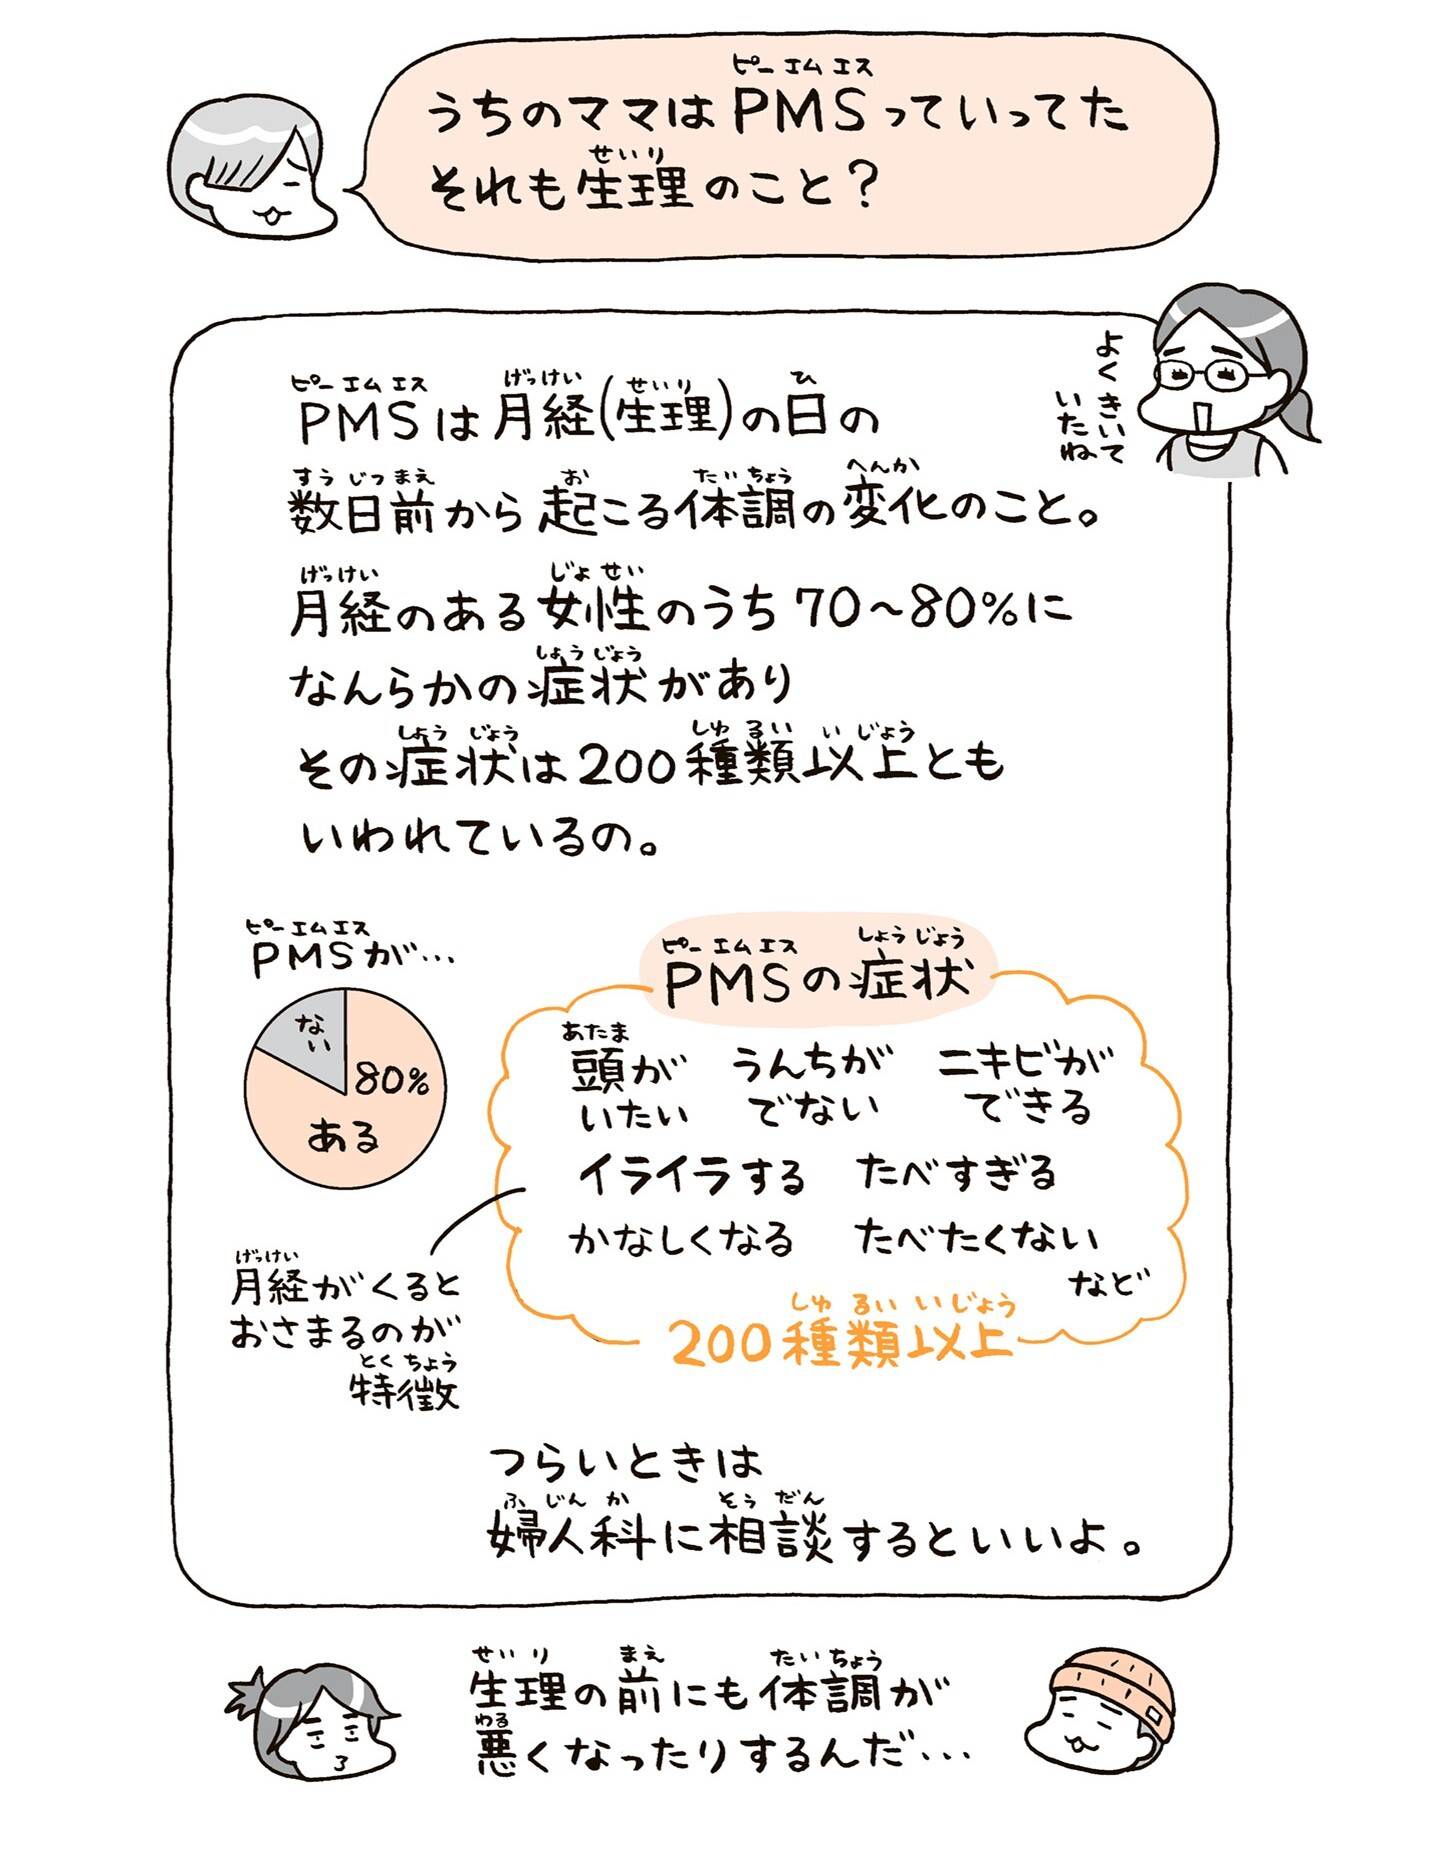 ピー エム エス
うちのママはPMSっていってた
せいり
それも生理のこと?
よくきいて
いたね
ピー エム エス げっけい せいり ひ
PMSは月経(生理)の日の
すう じつ まえ お たい ちょう へんか
数日前から起こる体調の変化のこと。
げっけい じょ せい
月経のある女性のうち70~80%に
しょう じょう
なんらかの症状があり
しょう じょう しゅ るい い じょう
その症状は200種類以上とも
いわれているの。
ピー エム エス
PMSが…
ない
80%
ある
ピー エム エス しょう じょう
PMSの症状
あたま
頭が
いたい
うんちが
でない
ニキビが
できる
イライラする たべすぎる
かなしくなる たべたくない
など
しゅ るい い じょう
200種類以上
げっけい
月経がくると
おさまるのが
とく ちょう
特徴
つらいときは
ふ じん か そう だん
婦人科に相談するといいよ。
せい り まえ たい ちょう
生理の前にも体調が
わる
悪くなったりするんだ…